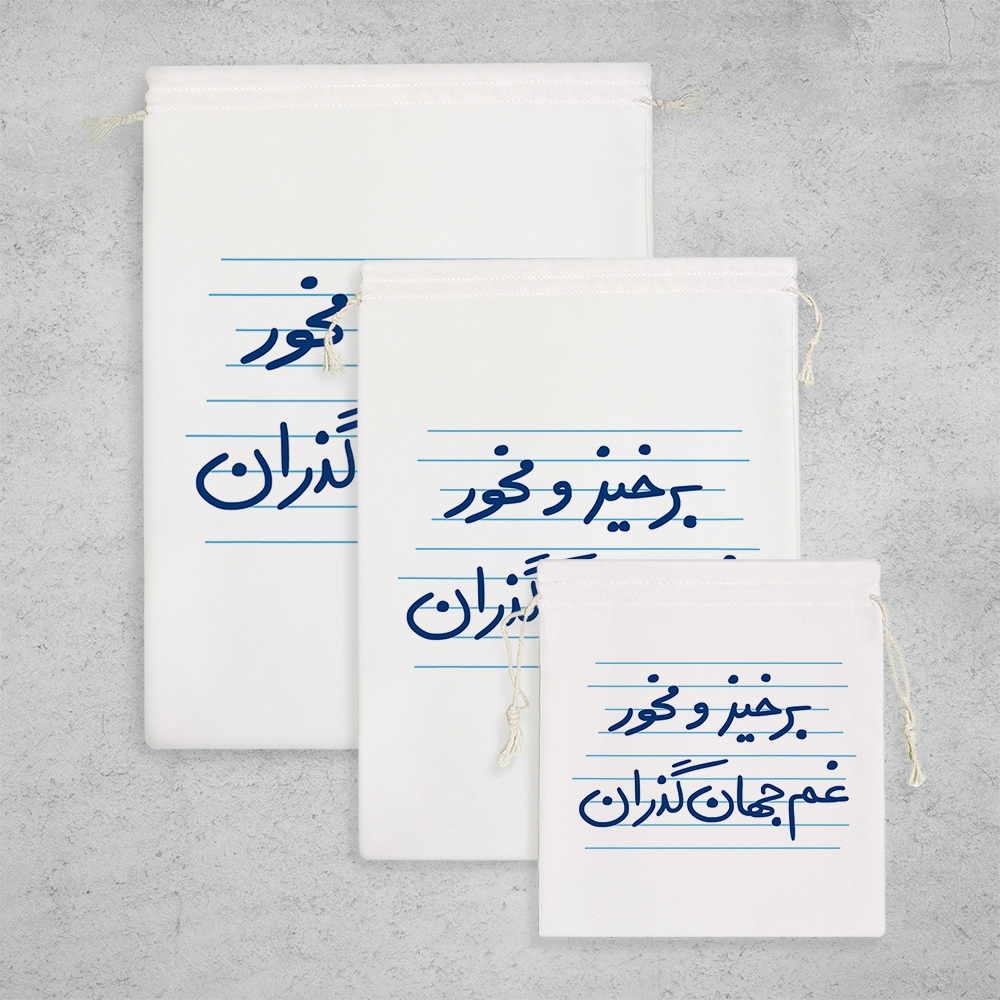 مخور
گذران
برخیز و مخور
گذران
برخیز و مخور
غم جهان گذران